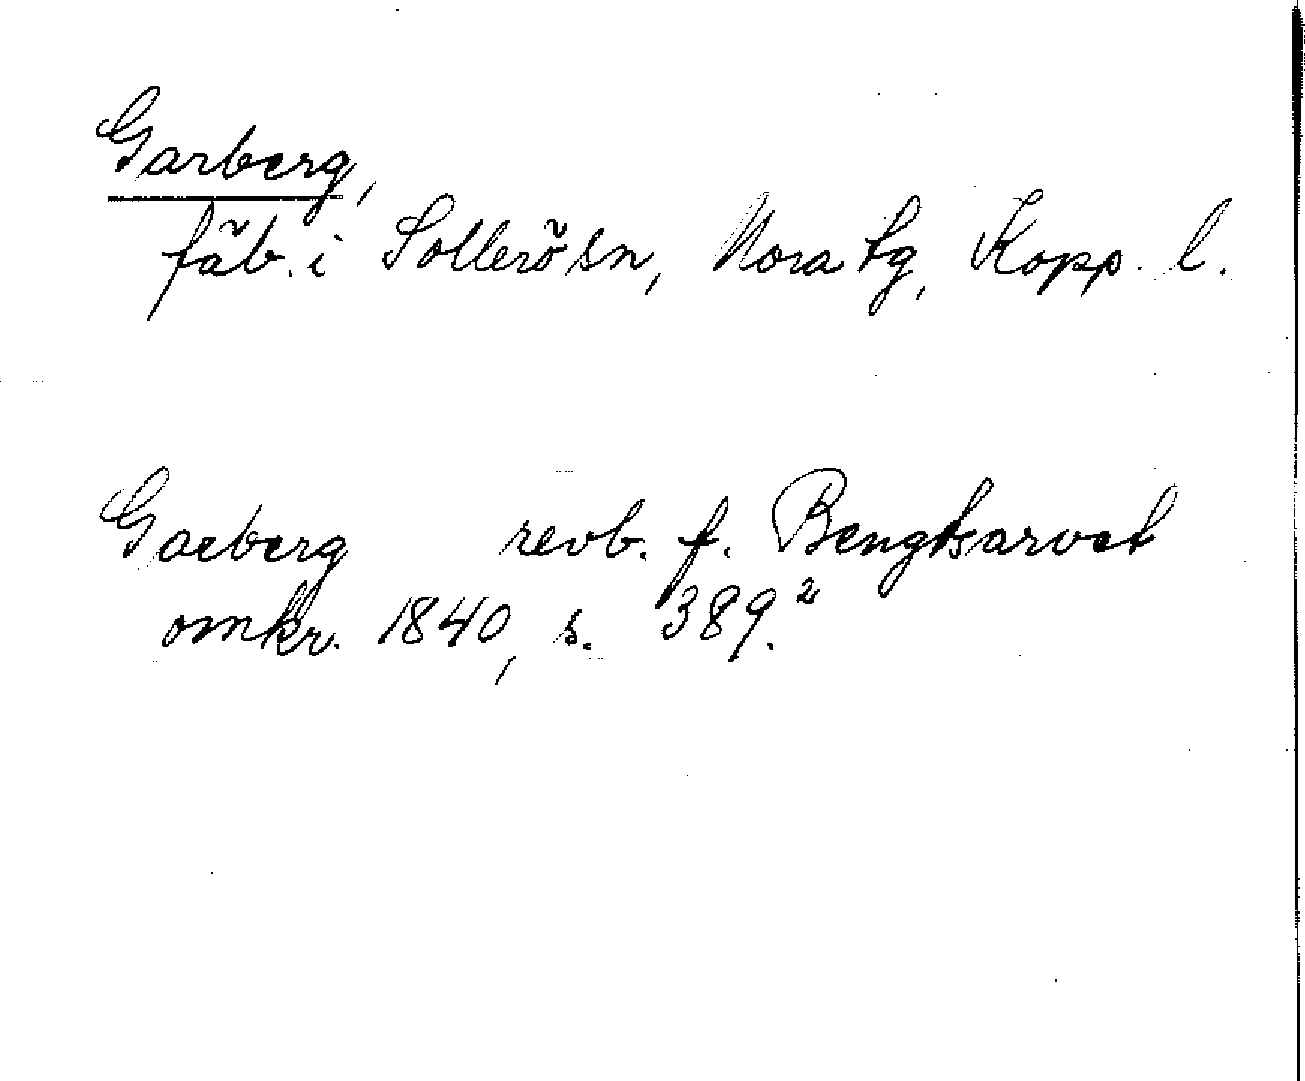 Garberg,
fäb. i Sollerö sn, Mora tg, Kopp. l.
Gaeberg revb. f. Bengtsarvet
omkr. 1840, s. 389.²